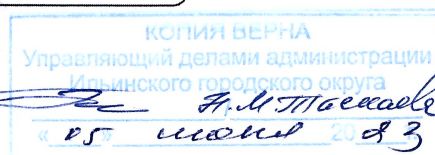 КОПИЯ ВЕРНА
Управляющий делами администрации
Ильинского городского округа
Н.М Таскаева
« 05 » июня 2023